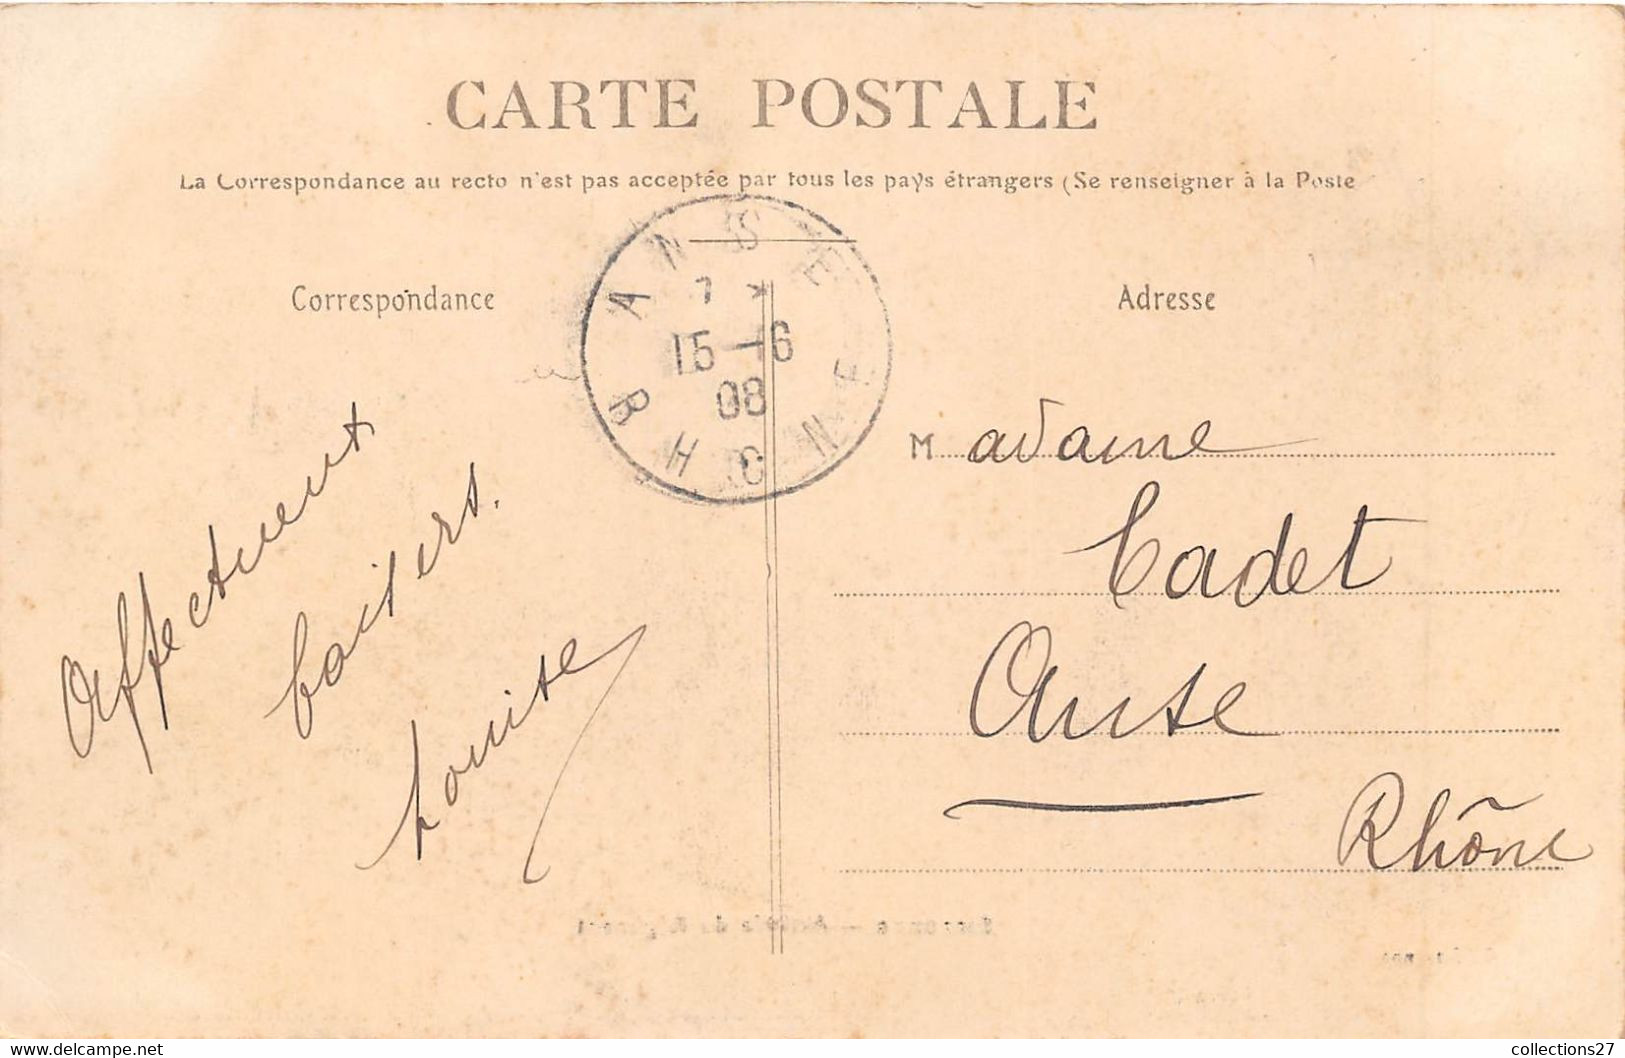 CARTE POSTALE
La Correspondance au recto n'est pas acceptée par tous les pays étrangers (Se renseigner à la Poste
Correspondance
Adresse
ANSE
7 *
15 - 6
08
RHONE
Affectueux
baisers.
Louise
Madame
Cadet
Anse
Rhône
https://www.delcampe.net
collections27